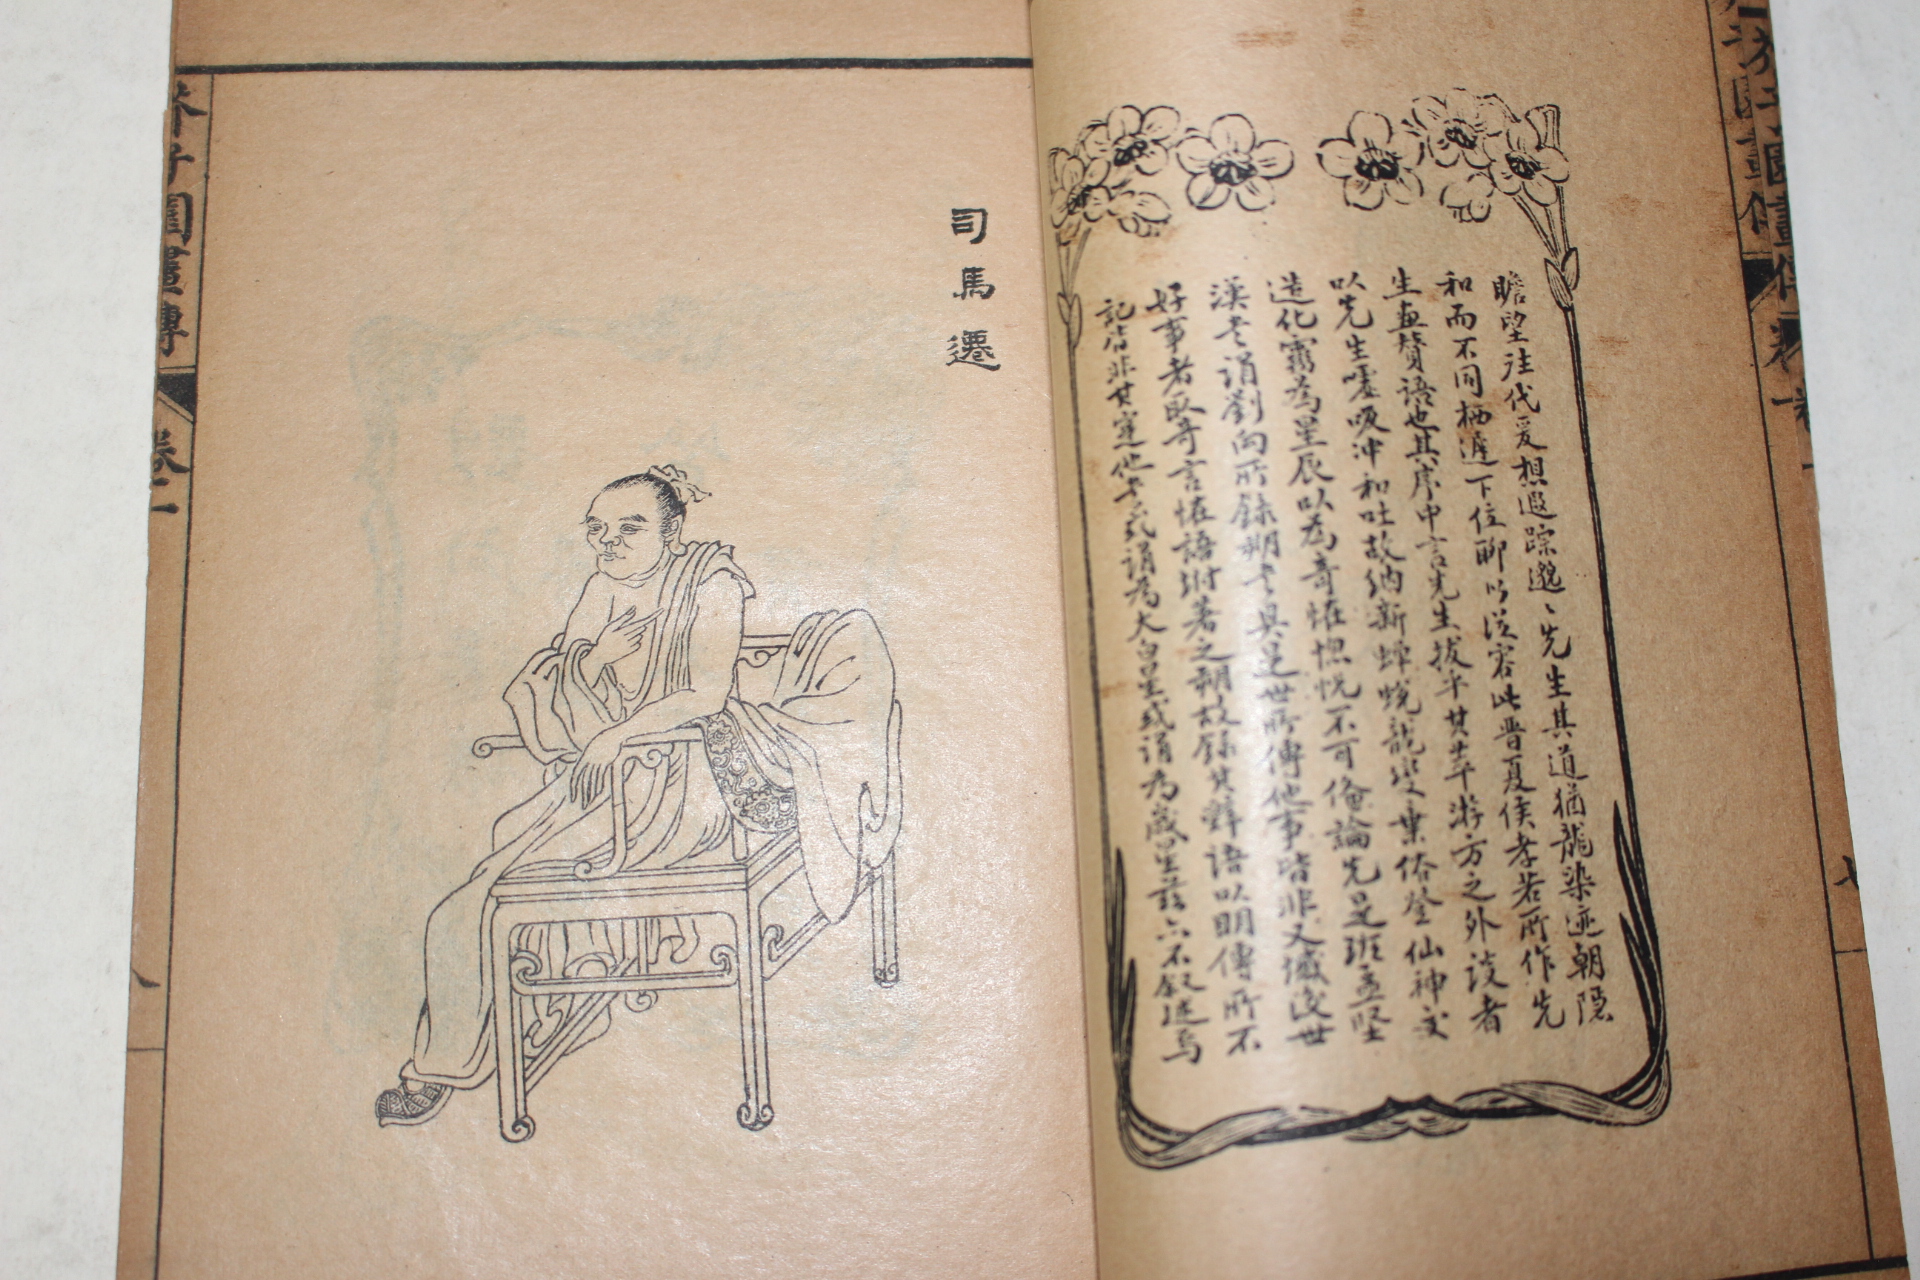 瞻望往代爰想遐踪邈〻先生其道猶龍染迹朝隱
和而不同栖遲下位聊以從容此晋夏侯孝若所作先
生畫贊語也其序中言先生拔乎其萃游方之外談者
以先生噓吸冲和吐故納新蟬蛻龍變棄俗登仙神交
造化靈為星辰以為奇惟惚恍不可備論先是班孟堅
漢書謂劉向所錄朔書具是世所傳他事皆非又懴後世
好事者取奇言怪語附著之朔故錄其辭語以明傳所不
記皆非其實他書或謂為太白星或謂為歲星兹亦不叙述焉
司馬遷
芥子園畫傳 卷一 七
芥子園畫傳 卷一 八